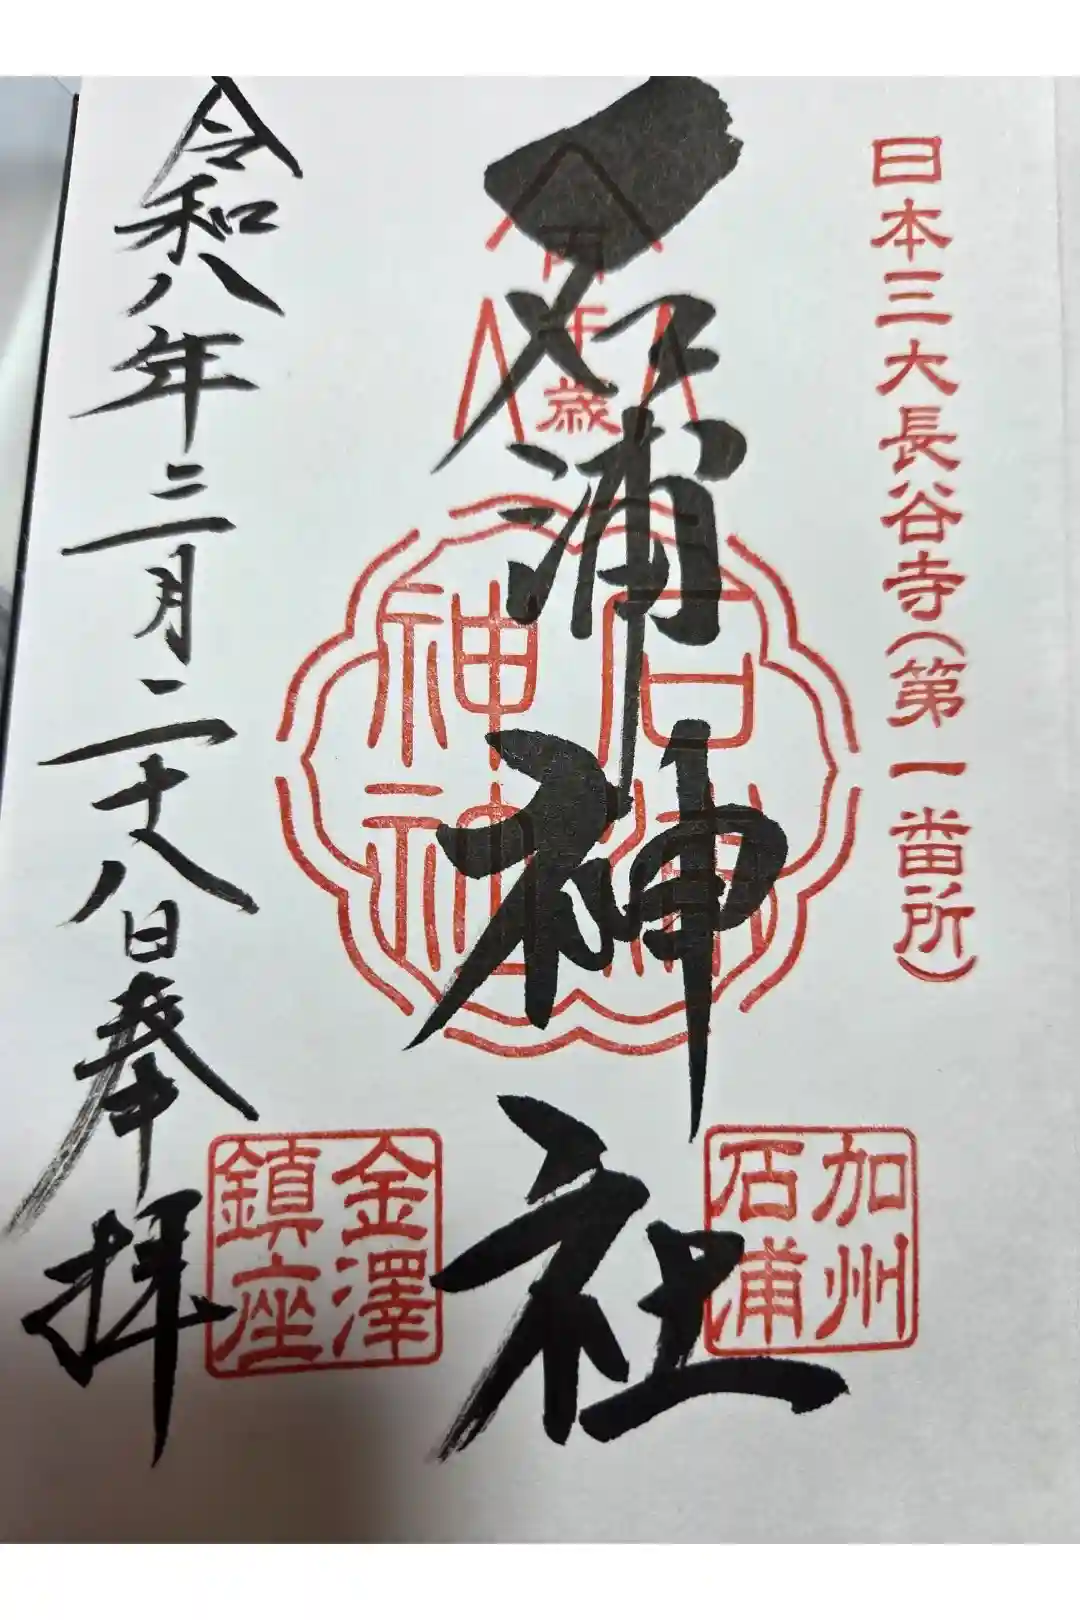 日本三大長谷寺(第一番所)
丙午歳
石浦神社
石浦
神社
加州
石浦
金澤
鎮座
令和八年三月二十八日奉拝